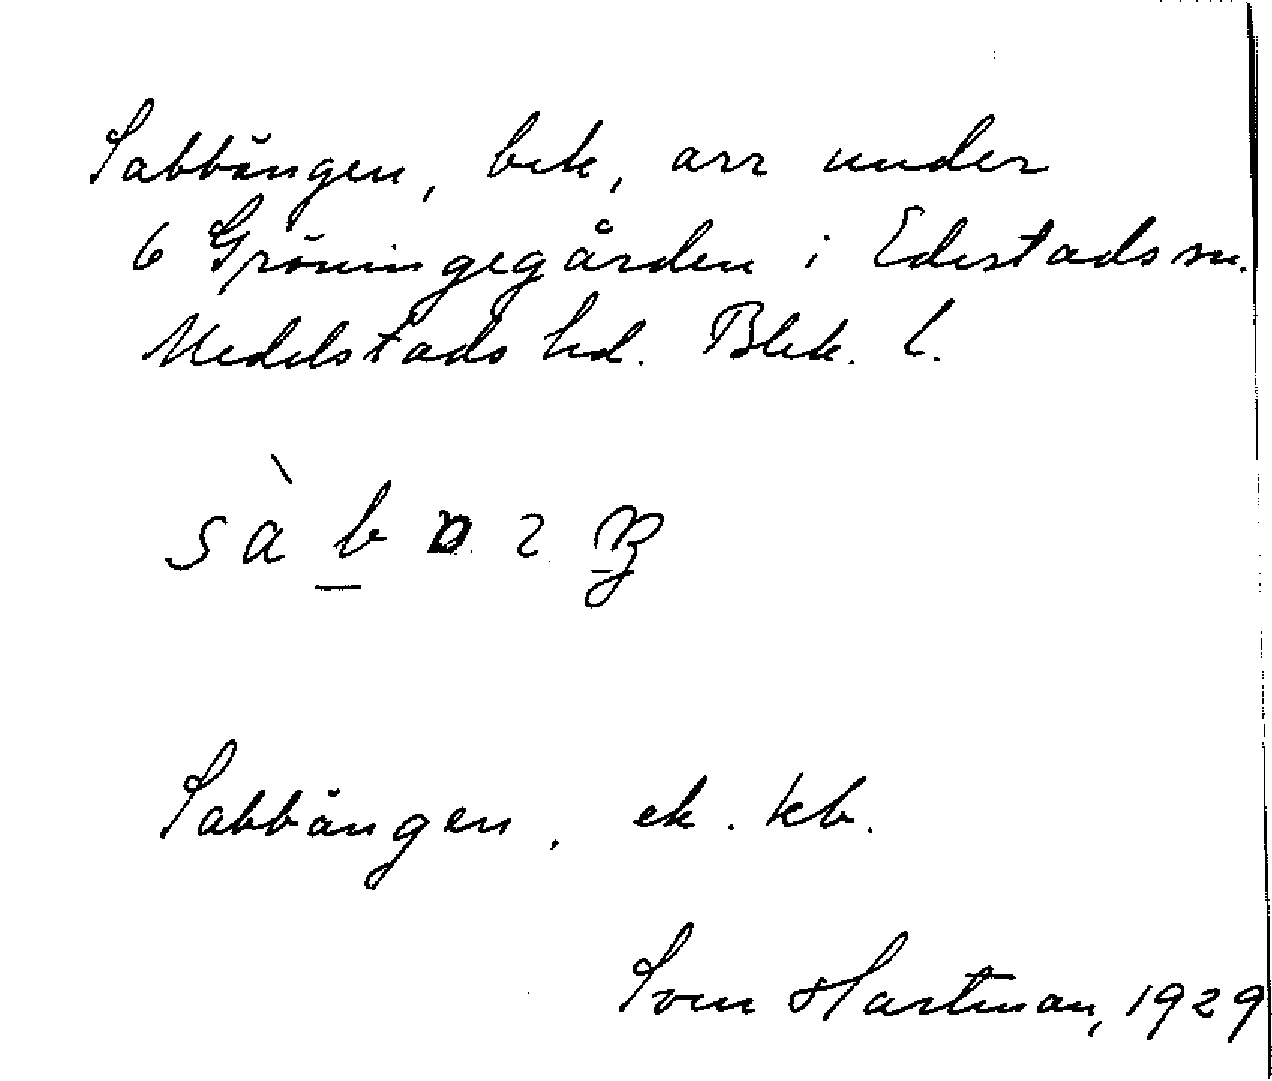 Sabbängen, bek, arr under
6 Gröningegården i Edestads sn.
Medelstads hd. Blek. l.
Sabbängen. ek. kb.
Sven Hartman, 1929